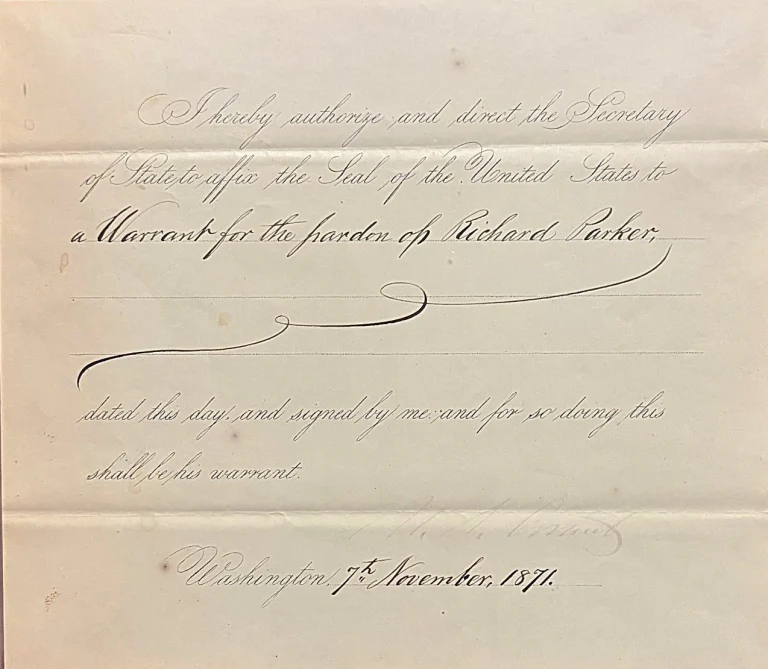 I hereby authorize and direct the Secretary
of State to affix the Seal of the United States to
a Warrant for the pardon of Richard Parker,
dated this day, and signed by me: and for so doing this
shall be his warrant.
Washington, 7th November, 1871.